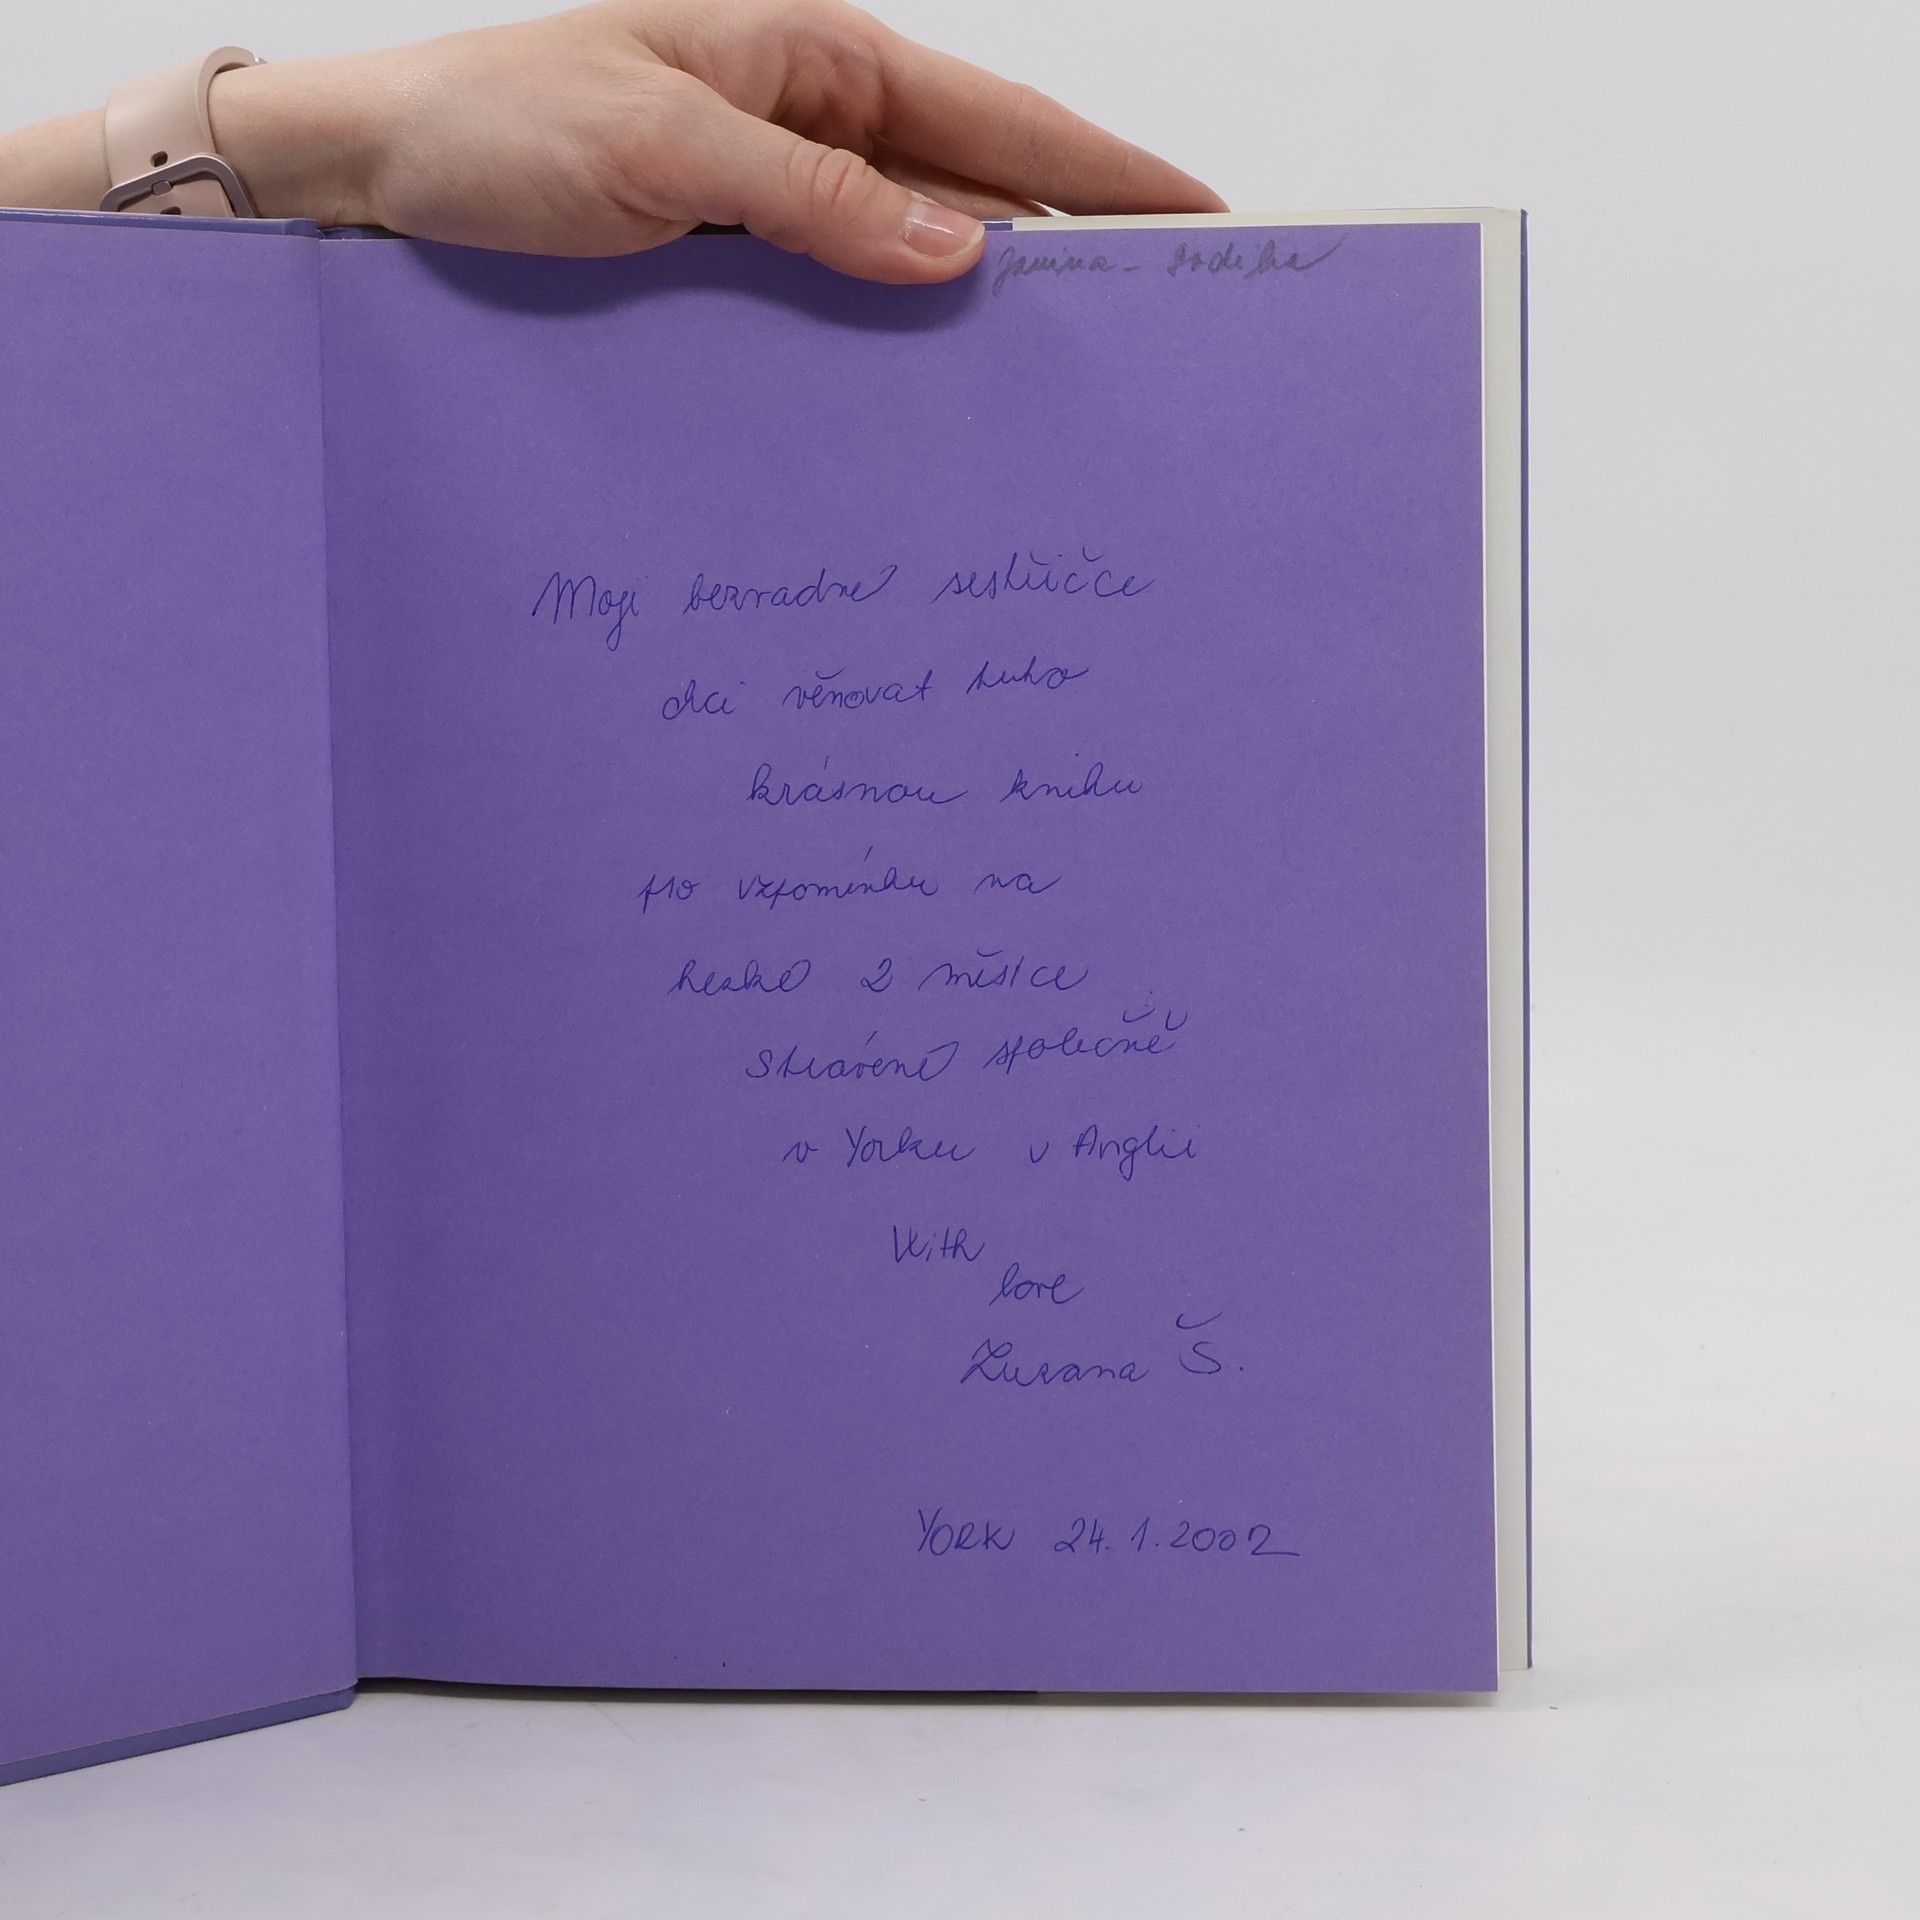 Janina - rodička
Moji bezradné sestřičce
chci věnovat tuto
krásnou knihu
pro vzpomínku na
hezké 2 měsíce
strávené společně
v Yorku v Anglii
With
love
Zuzana Š.
YORK 24.1.2002